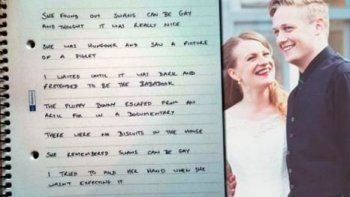 SHE FOUND OUT SWANS CAN BE GAY
AND THOUGHT IT WAS REALLY NICE
SHE WAS HUNGOVER AND SAW A PICTURE
OF A PIGLET
I WAITED UNTIL IT WAS DARK AND
PRETENDED TO BE THE BABADOOK
THE FLUFFY BUNNY ESCAPED FROM AN
ARTIC FOX IN A DOCUMENTARY
THERE WERE NO BISCUITS IN THE HOUSE
SHE REMEMBERED SWANS CAN BE GAY
I TRIED TO HOLD HER HAND WHEN SHE
WASN'T EXPECTING IT